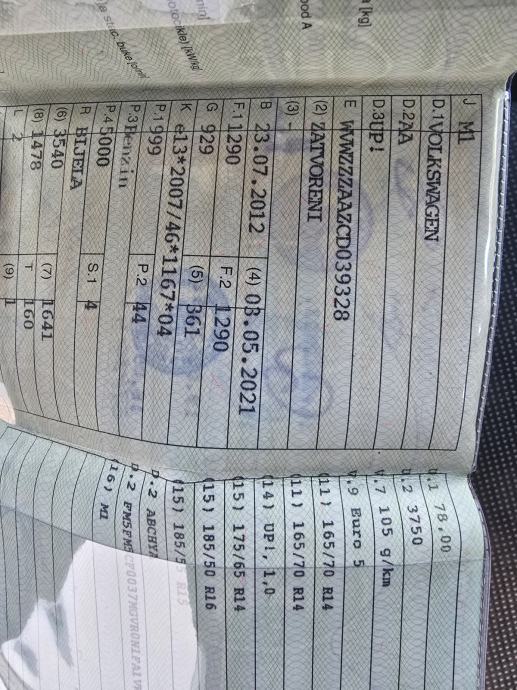 J M1
D.1 VOLKSWAGEN
D.2 AA
D.3 UP!
E WVWZZZAAZCD039328
(2) ZATVORENI
(3) -
B 23.07.2012 (4) 03.05.2021
F.1 1290 F.2 1290
G 929 (5) 361
K e13*2007/46*1167*04
P.1 999 P.2 44
P.3 Benzin
P.4 5000 S.1 4
R BIJELA
(6) 3540 (7) 1641
(8) 1478 T 160
L 2 (9) 1
U.1 78,00
U.2 3750
V.7 105 g/km
V.9 Euro 5
(11) 165/70 R14
(11) 165/70 R14
(14) UP!, 1,0
(15) 175/65 R14
(15) 185/50 R16
(15) 185/5 R15
D.2 ABCHYA
D.2
(16) M1